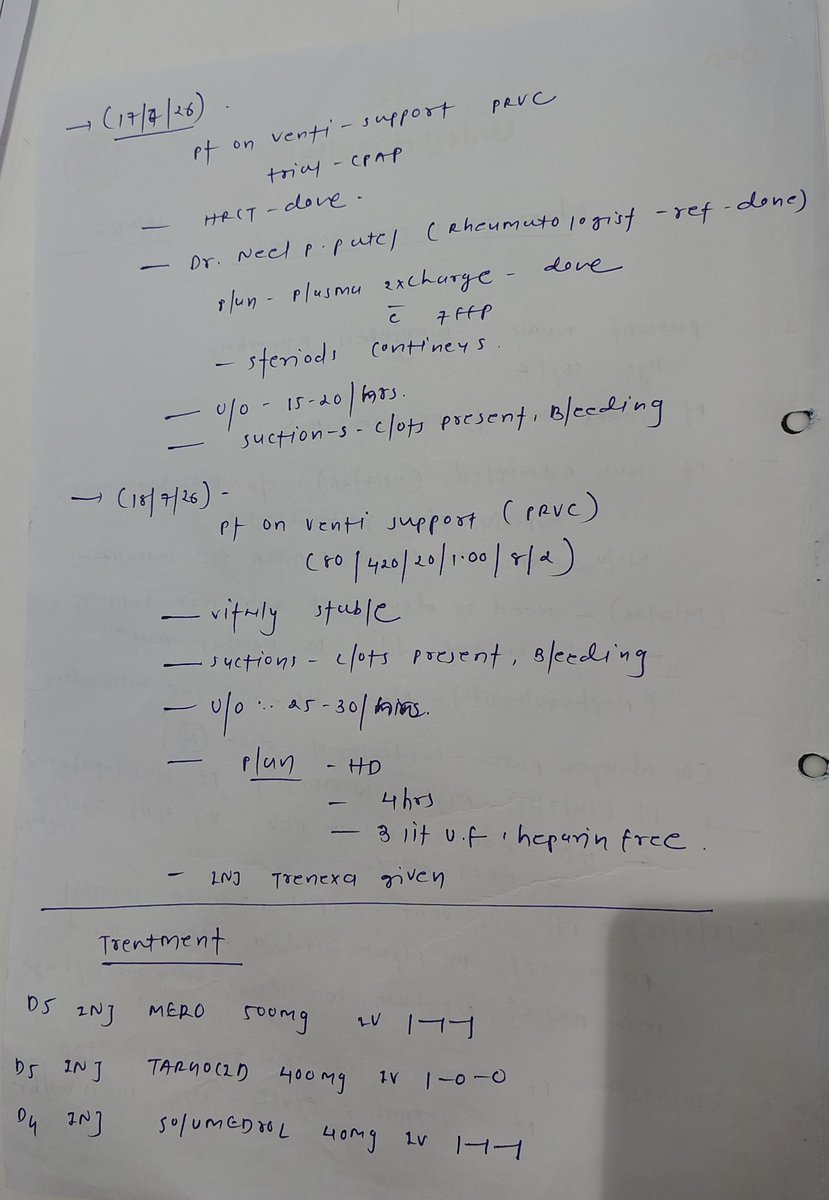 → (17/7/26).
pt on venti-support PRVC
trial - CPAP
— HRCT - done.
— Dr. Neel P. Patel (Rheumatologist - ref - done)
plan - plasma exchange - done
c̄ 7 FFP
- steriods continues.
— U/O - 15-20/hrs.
— suction-s - clots present, Bleeding
→ (18/7/26) -
pt on venti support (PRVC)
(80/420/20/1:00/8/2)
— vitally stable
— suctions - clots present, Bleeding
— U/O :. 25-30/hrs.
— plan - HD
- 4hrs
— 3 lit U.F, heparin free.
- INJ Trenexa given
Treatment
D5 INJ MERO 500mg IV 1-1-1
D5 INJ TARGOCID 400mg IV 1-0-0
D4 INJ SOLUMEDROL 40mg IV 1-1-1